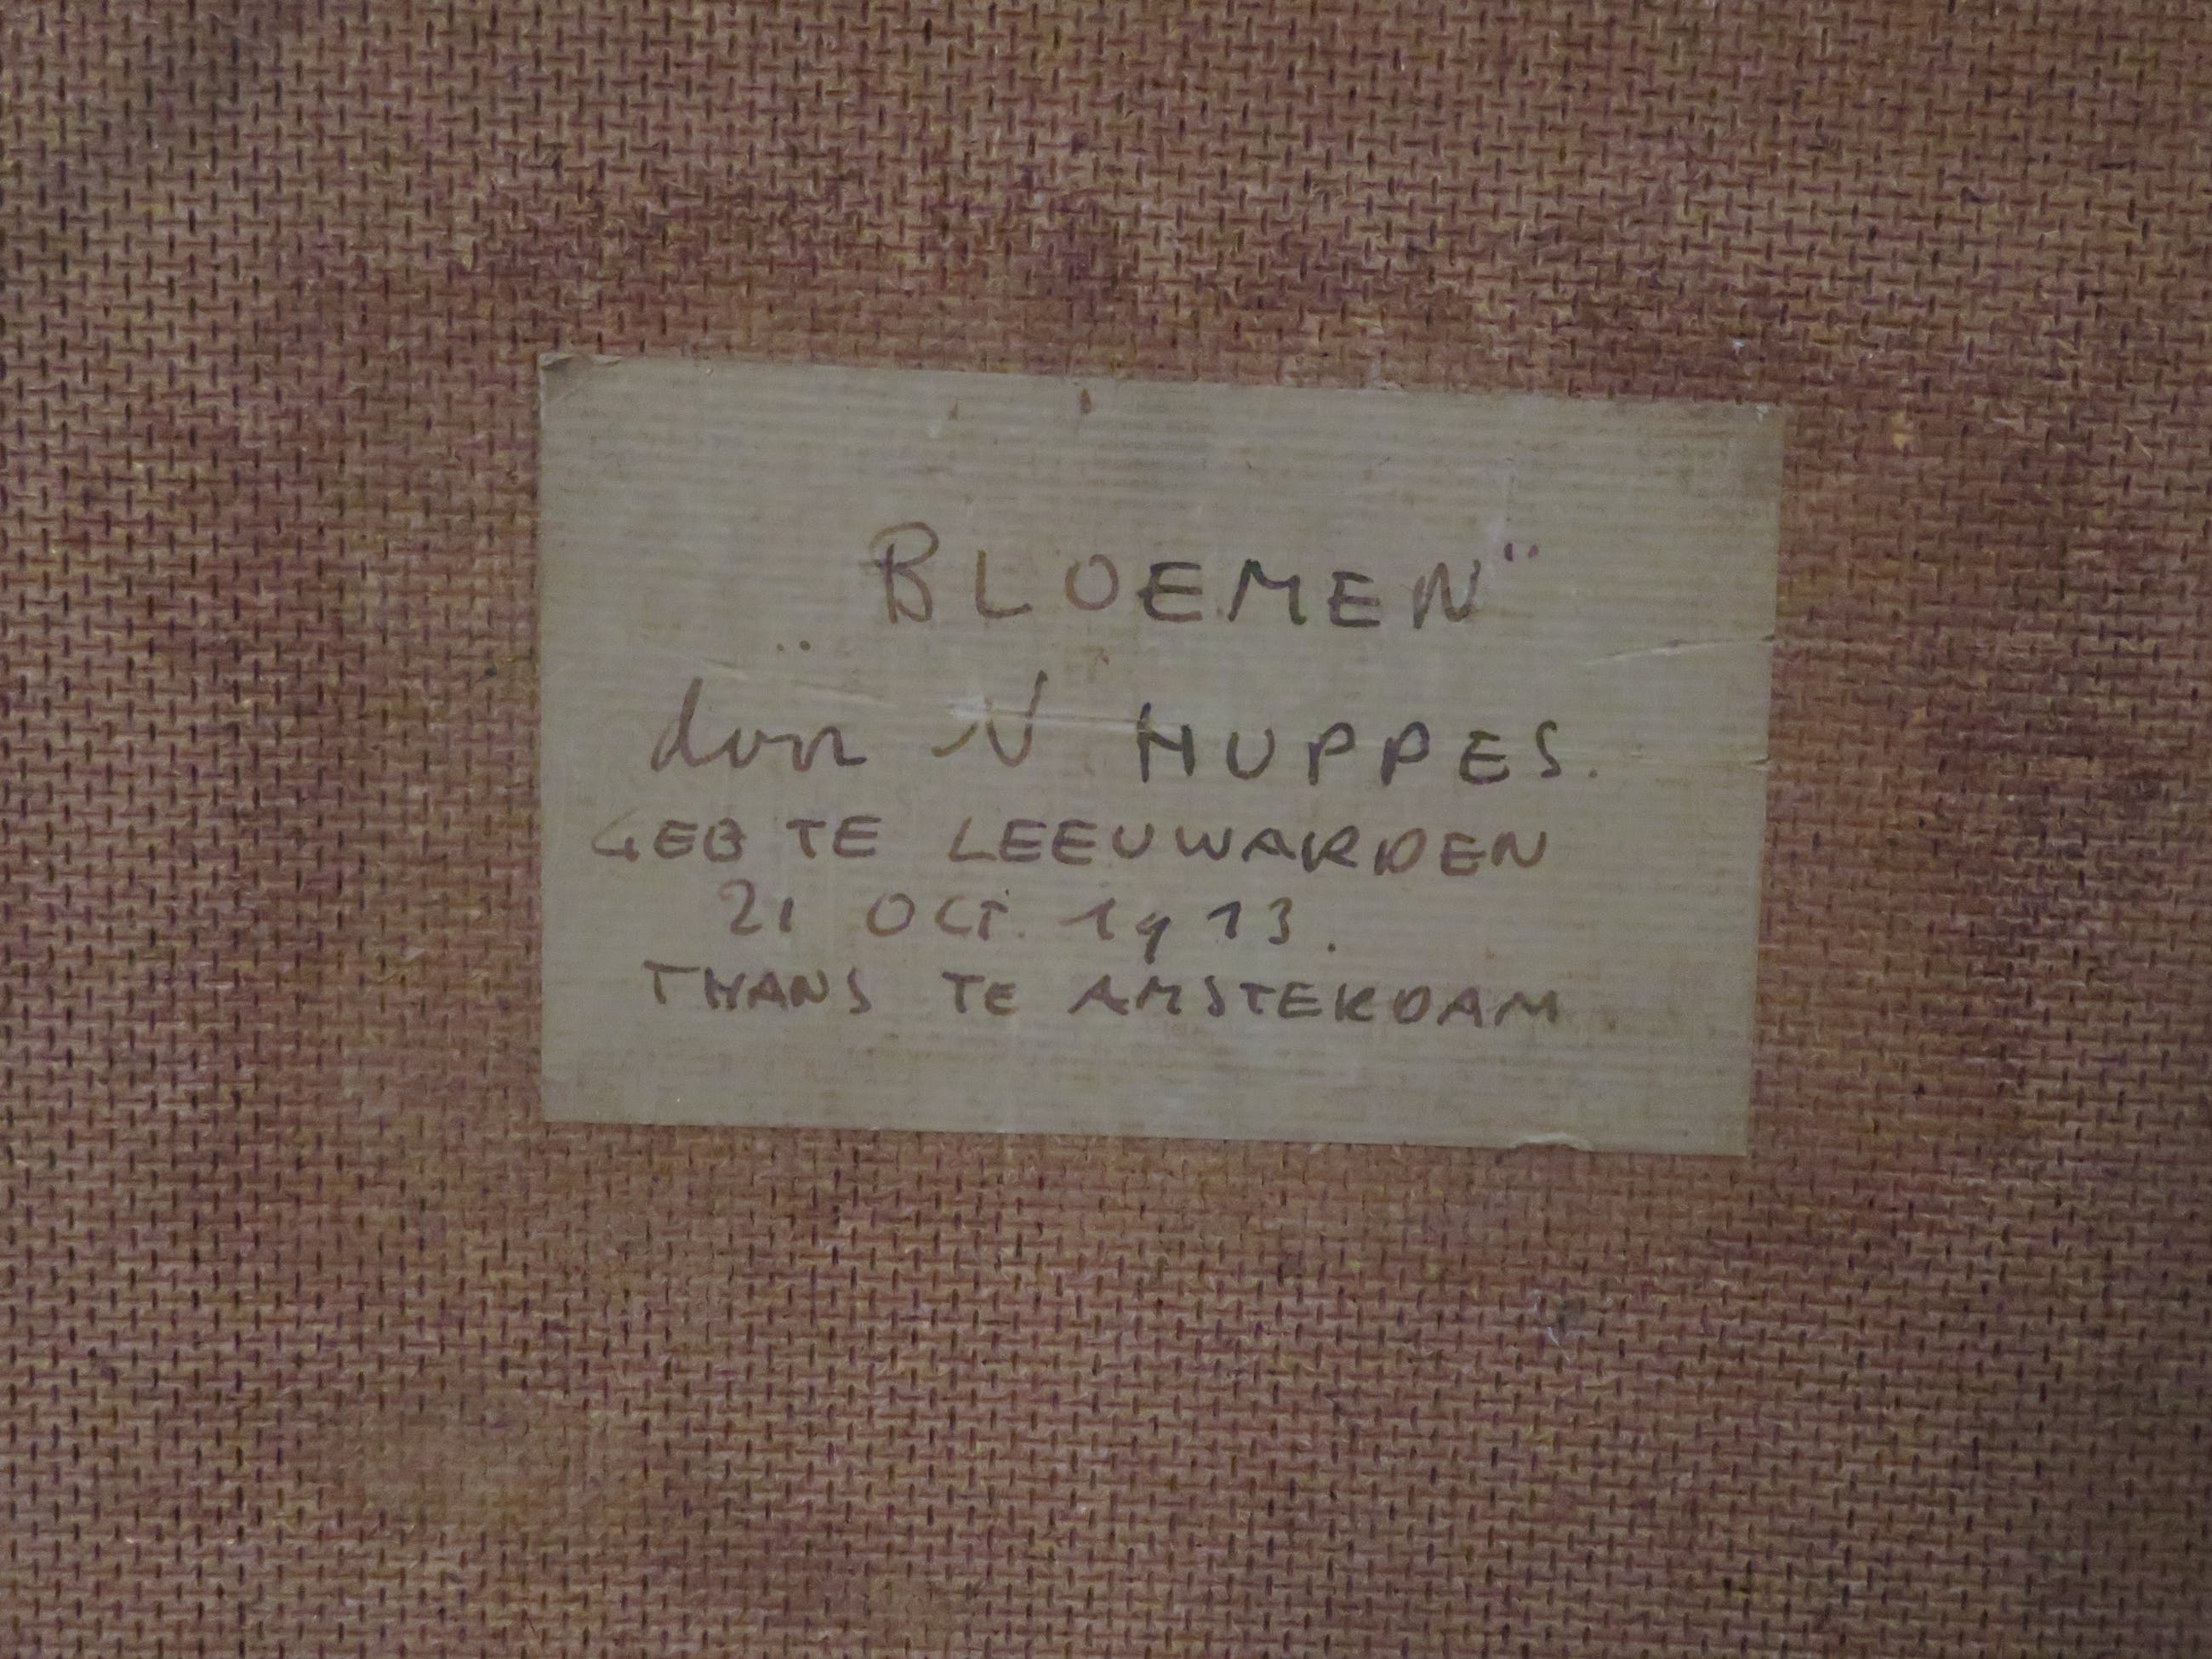 „BLOEMEN"
door N HUPPES.
GEB TE LEEUWARDEN
21 OCT. 1913.
THANS TE AMSTERDAM.